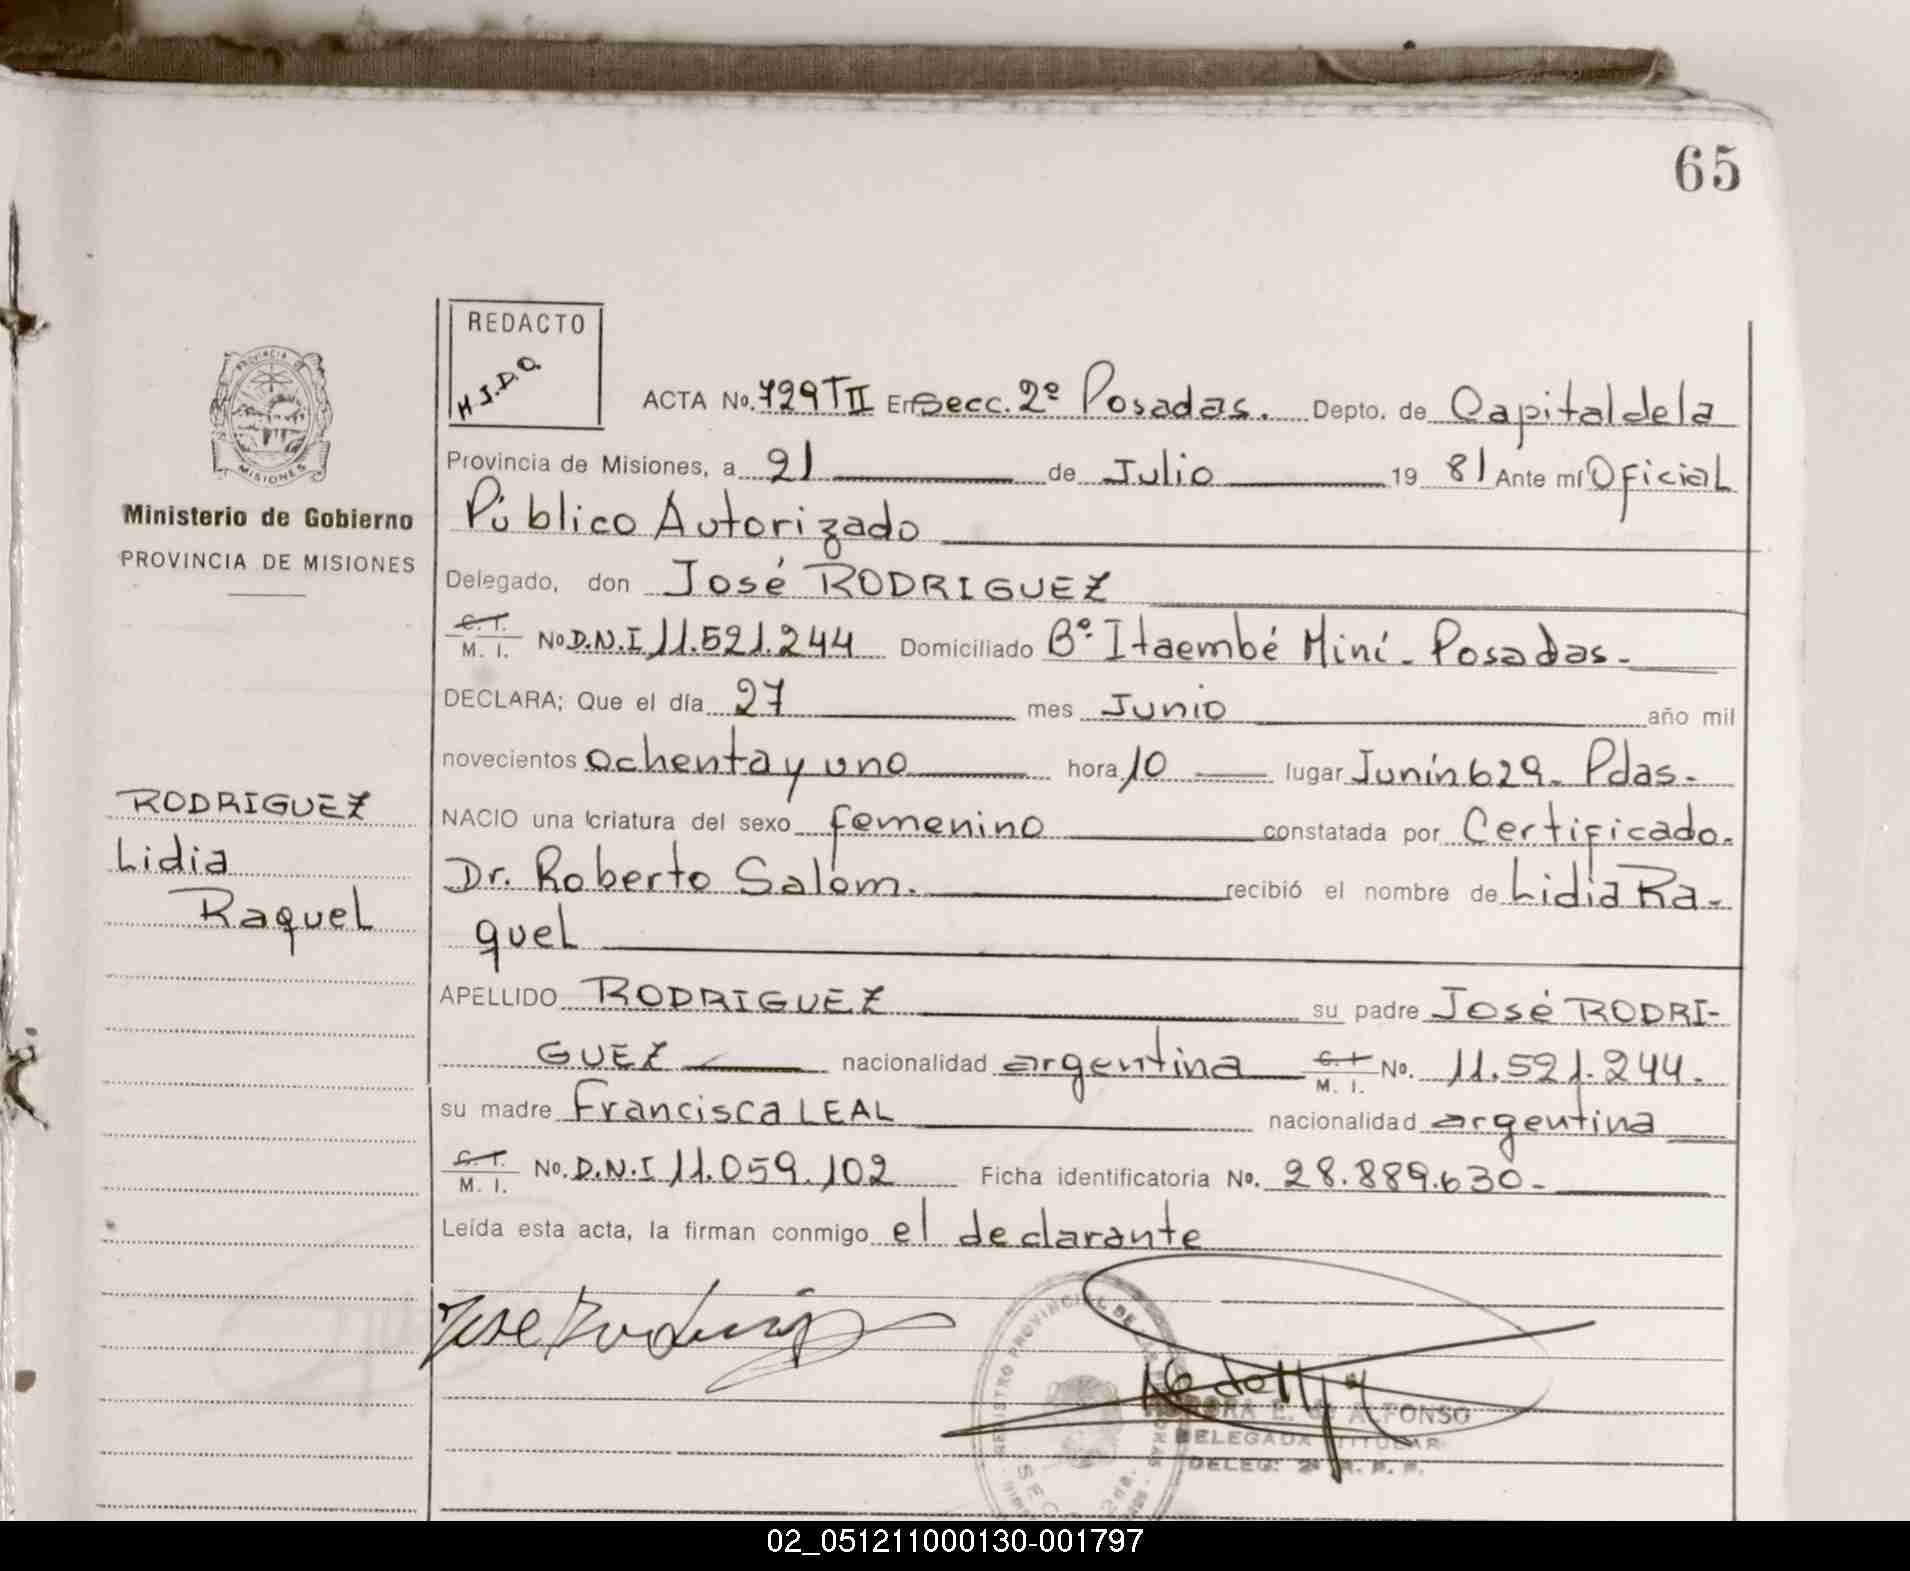 65
REDACTO
H.J.D.O.
PROVINCIA DE
MISIONES
Ministerio de Gobierno
PROVINCIA DE MISIONES
RODRIGUEZ
Lidia
Raquel
ACTA No. 729 T II En Secc. 2º Posadas. Depto. de Capital de la
Provincia de Misiones, a 21 de Julio 19 81 Ante mí Oficial
Público Autorizado
Delegado, don José RODRIGUEZ
C. I. M. I. No D.N.I 11.521.244 Domiciliado Bº Itaembé Miní - Posadas -
DECLARA; Que el día 27 mes Junio año mil
novecientos ochenta y uno hora 10 lugar Junín 629 - Pdas -
NACIO una criatura del sexo femenino constatada por Certificado.
Dr. Roberto Salom. recibió el nombre de Lidia Ra-
quel
APELLIDO RODRIGUEZ su padre José RODRI-
GUEZ nacionalidad argentina C. I. M. I. No. 11.521.244.
su madre Francisca LEAL nacionalidad argentina
C. I. M. I. No. D.N.I 11.059.102 Ficha identificatoria No. 28.889.630 -
Leída esta acta, la firman conmigo el declarante
Jose Rodriguez
REGISTRO PROVINCIAL DE LAS PERSONAS
E. ALFONSO
DELEGADA TITULAR
DELEG. 2ª R. P. P.
02_051211000130-001797